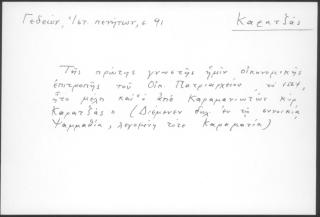 Γεδεών, Πατ. πενήτων, σ. 91
Καρατζάς
Τῆς πρώτης γνωστῆς ἡμῖν οἰκονομικῆς
ἐπιτροπῆς τοῦ Οἰκ. Πατριαρχείου τῷ
ἦτο μέλη καὶ ὁ ἀπὸ Καραμανιωτῶν κὺρ
Καρατζᾶς » (Διέμενεν δηλ. ἐν τῇ συνοικίᾳ
Ψαμμαθία, λεγομένῃ τότε Καραμανία)